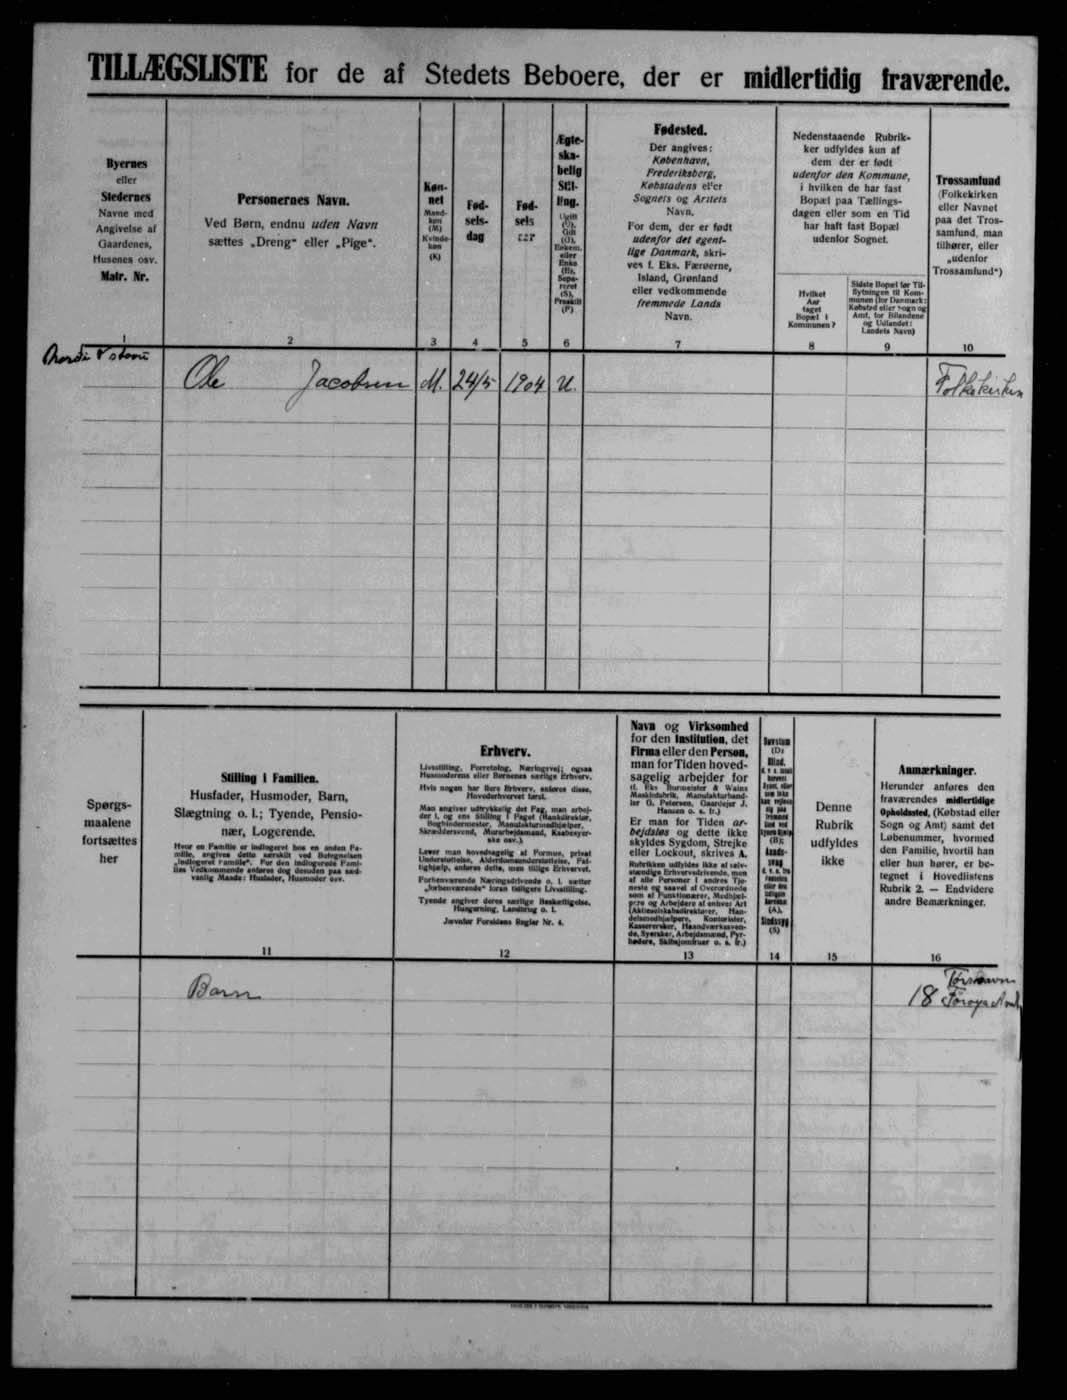 TILLÆGSLISTE for de af Stedets Beboere, der er midlertidig fraværende.
Byernes
eller
Stedernes
Navne med
Angivelse af
Gaardenes,
Husenes osv.
Matr. Nr.
1
Personernes Navn.
Ved Børn, endnu uden Navn
sættes „Dreng“ eller „Pige“.
2
Køn-
net
Mand-
køn
(M)
Kvinde-
køn
(K)
3
Fød-
sels-
dag
4
Fød-
sels
aar
5
Ægte-
ska-
belig
Stil-
ling.
Ugift
(U),
Gift
(G),
Enkem.
eller
Enke
(E),
Sepa-
reret
(S),
Fraskilt
(F)
6
Fødested.
Der angives:
København,
Frederiksberg,
Købstadens eller
Sognets og Amtets
Navn.
For dem, der er født
udenfor det egent-
lige Danmark, skri-
ves f. Eks. Færøerne,
Island, Grønland
eller vedkommende
fremmede Lands
Navn.
7
Nedenstaaende Rubrik-
ker udfyldes kun af
dem der er født
udenfor den Kommune,
i hvilken de har fast
Bopæl paa Tællings-
dagen eller som en Tid
har haft fast Bopæl
udenfor Sognet.
Hvilket
Aar
taget
Bopæl i
Kommunen?
8
Sidste Bopæl før Til-
flytningen til Kom-
munen (for Danmark:
Købsted eller Sogn og
Amt, for Bilandene
og Udlandet:
Landets Navn)
9
Trossamfund
(Folkekirken
eller Navnet
paa det Tros-
samfund, man
tilhører, eller
„udenfor
Trossamfund“)
10
Ole Jacobsen M. 24/5 1904 U. Folkekirken
Spørgs-
maalene
fortsættes
her
Stilling i Familien.
Husfader, Husmoder, Barn,
Slægtning o. l.; Tyende, Pensio-
nær, Logerende.
Hvor en Familie er indlogeret hos en anden Fa-
milie, angives dette særskilt ved Betegnelsen
„indlogeret Familie“. For den indlogerede Fami-
lies Vedkommende anføres dog desuden paa sæd-
vanlig Maade: Husfader, Husmoder osv.
11
Erhverv.
Livsstilling, Forretning, Næringsvej; ogsaa
Husmoderens eller Børnenes særlige Erhverv.
Hvis nogen har flere Erhverv, anføres disse,
Hovederhvervet først.
Man angiver udtrykkelig det Fag, man arbej-
der i, og ens Stilling i Faget (Bankdirektør,
Bogbindermester, Manufakturmedhjælper,
Skræddersvend, Murarbejdsmand, Kasabesyer-
ske osv.).
Lever man hovedsagelig af Formue, privat
Understøttelse, Alderdomsunderstøttelse, Fat-
tighjælp, anføres dette, men tillige Erhvervet.
Forhenværende Næringsdrivende o. l. sætter
„forhenværende“ foran tidligere Livsstilling.
Tyende angiver deres særlige Beskæftigelse,
Husgerning, Landbrug o. l.
Jævnfør Forsidens Regler Nr. 4.
12
Navn og Virksomhed
for den Institution, det
Firma eller den Person,
man for Tiden hoved-
sagelig arbejder for
(f. Eks Burmeister & Wains
Maskinfabrik, Manufakturhand-
ler G. Petersen, Gaardejer J.
Hansen o. s. fr.)
Er man for Tiden ar-
bejdsløs og dette ikke
skyldes Sygdom, Strejke
eller Lockout, skrives A.
Rubrikken udfyldes ikke af selv-
stændige Erhvervsdrivende, men
af alle Personer i andres Tje-
neste og saavel af Overordnede
som af Funktionærer, Medhjæl-
pere og Arbejdere af enhver Art
(Aktieselskabsdirektører, Han-
delsmedhjælpere, Kontorister,
Kassererske, Haandværkssven-
de, Syersker, Arbejdsmænd, Fyr-
bødere, Skibsjomfruer o. s. fr.)
13
Døvstum
(D)
Blind,
14
Denne
Rubrik
udfyldes
ikke
15
Anmærkninger.
Herunder anføres den
fraværendes midlertidige
Opholdssted, (Købstad eller
Sogn og Amt) samt det
Løbenummer, hvormed
den Familie, hvortil han
eller hun hører, er be-
tegnet i Hovedlistens
Rubrik 2. — Endvidere
andre Bemærkninger.
16
Barn
Torshavn
18 Færøyn Amt